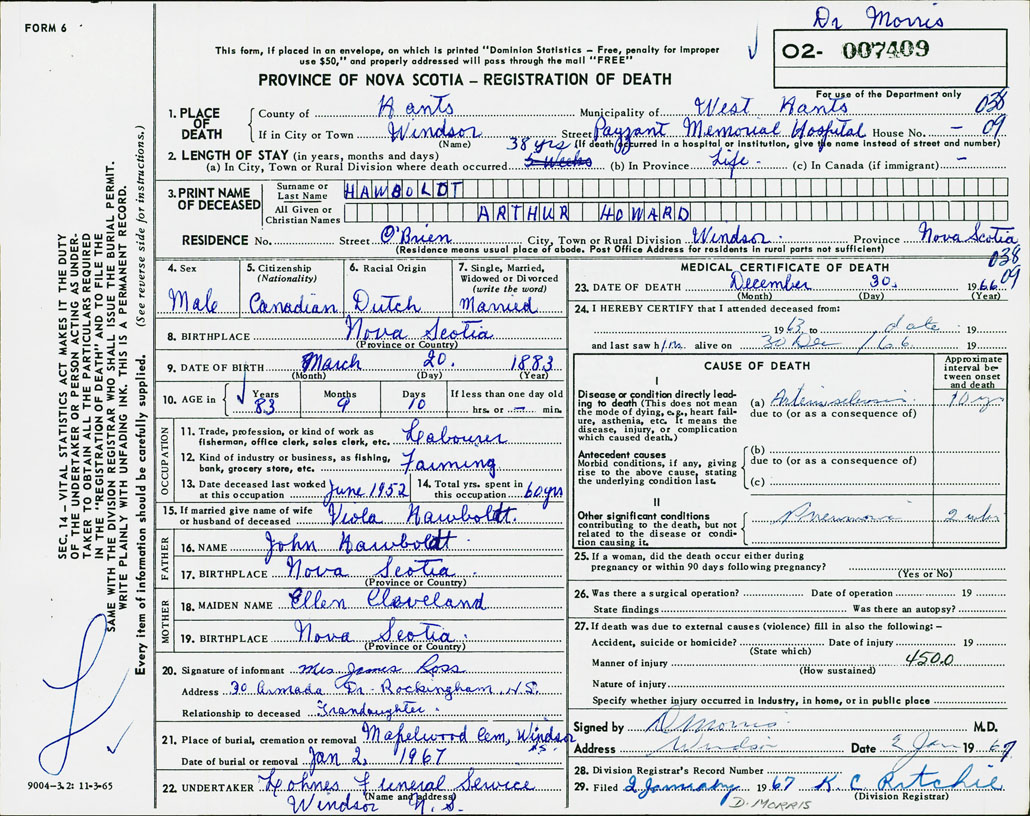 Dr Morris
FORM 6
This form, if placed in an envelope, on which is printed "Dominion Statistics – Free, penalty for improper
use $50," and properly addressed will pass through the mail "FREE"
02- 007409
PROVINCE OF NOVA SCOTIA – REGISTRATION OF DEATH
For use of the Department only
038
09
1. PLACE OF DEATH
County of Hants Municipality of West Hants
If in City or Town Windsor Street Payzant Memorial Hospital House No. –
(Name) (If death occurred in a hospital or institution, give its name instead of street and number)
2. LENGTH OF STAY (in years, months and days) 38 yrs
(a) In City, Town or Rural Division where death occurred 5 Weeks (b) In Province Life. (c) In Canada (if immigrant) –
3. PRINT NAME OF DECEASED
Surname or Last Name HAWBOLDT
All Given or Christian Names ARTHUR HOWARD
RESIDENCE No. Street O'Brien City, Town or Rural Division Windsor. Province Nova Scotia
(Residence means usual place of abode. Post Office Address for residents in rural parts not sufficient)
038
09
4. Sex Male
5. Citizenship (Nationality) Canadian
6. Racial Origin Dutch
7. Single, Married, Widowed or Divorced (write the word) Married
8. BIRTHPLACE Nova Scotia
(Province or Country)
9. DATE OF BIRTH March 20. 1883
(Month) (Day) (Year)
10. AGE in Years Months Days If less than one day old
83 9 10 hrs. or – min.
OCCUPATION
11. Trade, profession or kind of work as fisherman, office clerk, sales clerk, etc. Labourer
12. Kind of industry or business, as fishing, bank, grocery store, etc. Farming
13. Date deceased last worked at this occupation June 1952
14. Total yrs. spent in this occupation 60 yrs
15. If married give name of wife or husband of deceased Viola Hawboldt.
FATHER
16. NAME John Hawboldt
17. BIRTHPLACE Nova Scotia.
(Province or Country)
MOTHER
18. MAIDEN NAME Ellen Cleveland
19. BIRTHPLACE Nova Scotia.
(Province or Country)
20. Signature of informant Mrs James Ross
Address 30 Armada Dr. Rockingham, N.S.
Relationship to deceased Grandaughter.
21. Place of burial, cremation or removal Mapelwood Cem, Windsor N.S.
Date of burial or removal Jan 2, 1967
22. UNDERTAKER Lohnes Funeral Service
(Name and address)
Windsor N.S.
MEDICAL CERTIFICATE OF DEATH
23. DATE OF DEATH December 30. 1966
(Month) (Day) (Year)
24. I HEREBY CERTIFY that I attended deceased from:
1963 to date 19
and last saw him alive on 30 Dec /66. 19
CAUSE OF DEATH
Approximate interval between onset and death
I
Disease or condition directly leading to death (This does not mean the mode of dying, e.g., heart failure, asthenia, etc. It means the disease, injury, or complication which caused death.)
(a) Arteriosclerosis 10 yrs
due to (or as a consequence of)
Antecedent causes
Morbid conditions, if any, giving rise to the above cause, stating the underlying condition last.
(b)
due to (or as a consequence of)
(c)
II
Other significant conditions contributing to the death, but not related to the disease or condition causing it.
Pneumonia 2 wks
25. If a woman, did the death occur either during
pregnancy or within 90 days following pregnancy?
(Yes or No)
26. Was there a surgical operation? Date of operation 19
State findings Was there an autopsy?
27. If death was due to external causes (violence) fill in also the following: –
Accident, suicide or homicide? Date of injury 19
(State which)
Manner of injury 450.0
(How sustained)
Nature of injury
Specify whether injury occurred in Industry, in home, or in public place
Signed by D Morris M.D.
Address Windsor Date 2 Jan 1967
28. Division Registrar's Record Number
29. Filed 2 January 1967 K C Ritchie
(Division Registrar)
D. MORRIS
SEC. 14 – VITAL STATISTICS ACT MAKES IT THE DUTY
OF THE UNDERTAKER OR PERSON ACTING AS UNDERTAKER
TO OBTAIN ALL THE PARTICULARS REQUIRED
IN THE "REGISTRATION OF DEATH" AND TO FILE THE
SAME WITH THE DIVISION REGISTRAR WHO SHALL ISSUE THE BURIAL PERMIT.
WRITE PLAINLY WITH UNFADING INK. THIS IS A PERMANENT RECORD.
Every item of information should be carefully supplied. (See reverse side for instructions.)
9004-3.2: 11-3-65